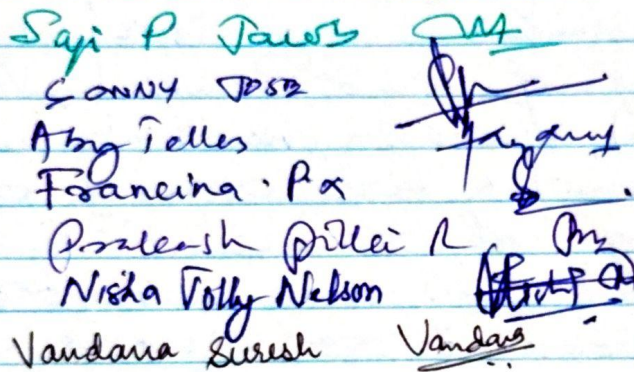 Saji P Jacob
SONNY JOSE
Aby Telles
Francina . P X
Prakash Pillai R
Nisha Tolly Nelson
Vandana Suresh Vandana